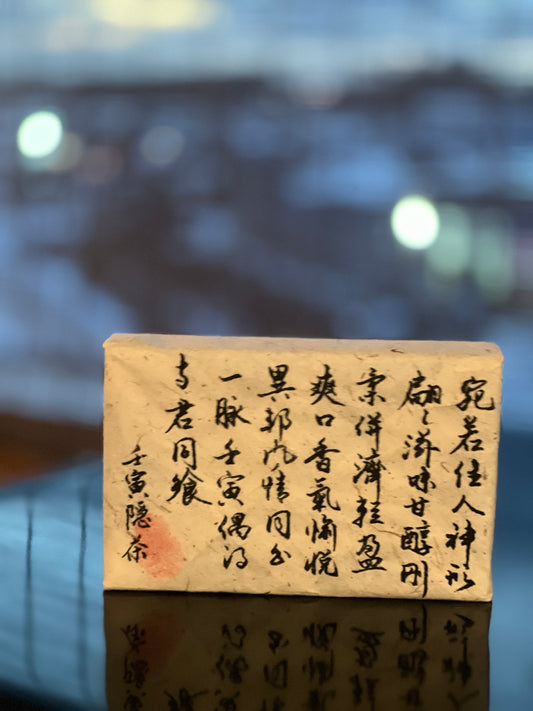 宛若佳人神形
翩々滋味甘醇刚
柔併濟輕盈
爽口香氣愉悦
異邦风情同出
一脉壬寅偶得
与君同飨
壬寅隐茶